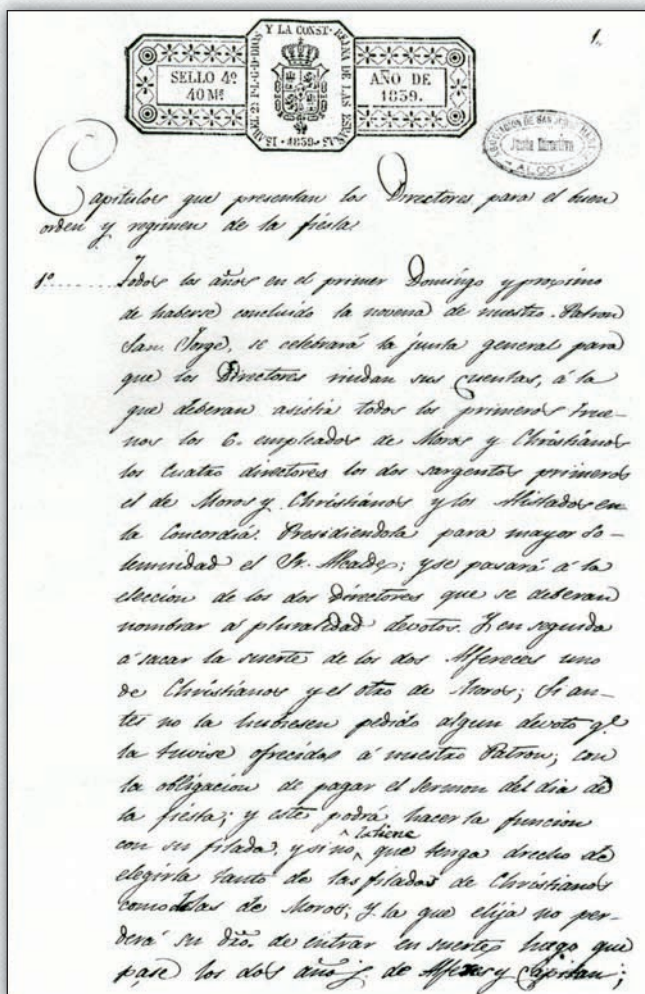 1.
SELLO 4º
40 Mº
ISABEL 2ª P.L.G.D DIOS Y LA CONST. REINA DE LAS ESPAÑAS
· 1839 ·
AÑO DE
1839.
ASOCIACION DE SAN JORGE MARTIR
Junta Directiva
ALCOY
Capitulos que presentan los Directores para el buen
orden y regimen de la fiesta.
1º........ Todos los años en el primer Domingo y proximo
de haberse concluido la novena de nuestro Patron
San Jorge, se celebrará la junta general para
que los Directores rindan sus cuentas, á la
que deberan asistir todos los primeros true-
nos los 6. empleados de Moros y Christianos
los Cuatro directores los dos sargentos primeros
el de Moros y Christianos y los Alistados en
la Concordia. Presidiendola para mayor So-
lemnidad el Sr. Alcalde; y se pasará á la
eleccion de los dos Directores que se deberan
nombrar á pluralidad de votos. Y en seguida
á sacar la suerte de los dos Alfereces uno
de Christianos y el otro de Moros; Si an-
tes no la hubiesen pedido algun devoto qe
la tuvise ofrecida á nuestro Patron; con
la obligacion de pagar el Sermon del dia de
la fiesta; y este podrá hacer la funcion
con su filada, y si no ^ la tiene que tenga drecho de
elegirla tanto de las filadas de Christianos
como de las de Moros; Y la que elija no per-
derá su dro. de entrar en suerte luego que
pase los dos años de Alferes y Capitan;